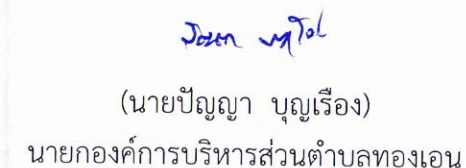 (นายปัญญา บุญเรือง)
นายกองค์การบริหารส่วนตำบลทองเอน